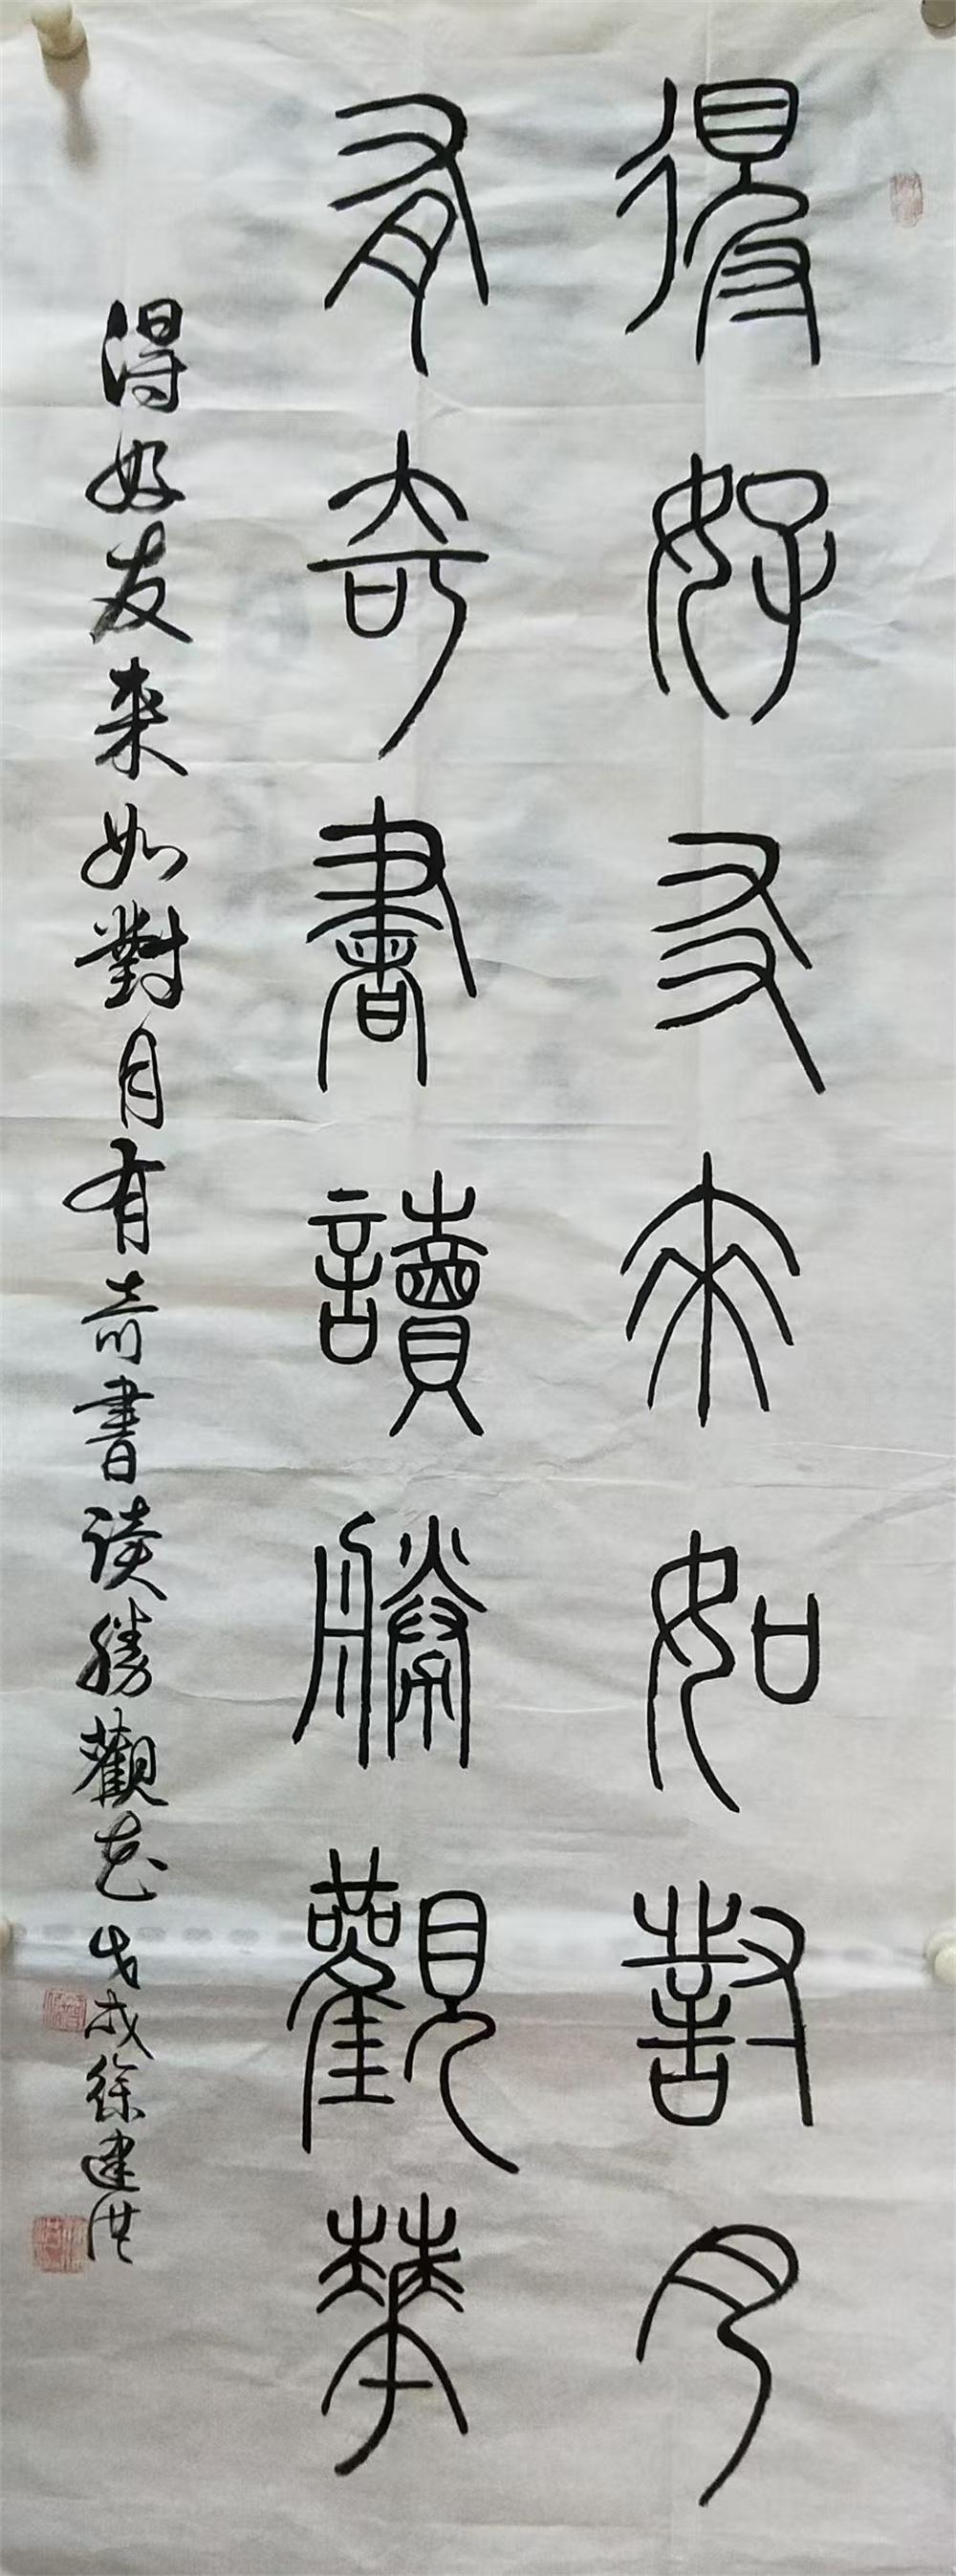 得好友來如對月
有奇書讀勝觀華
得好友来如對月有奇書读勝觀花 戊戌徐建洪